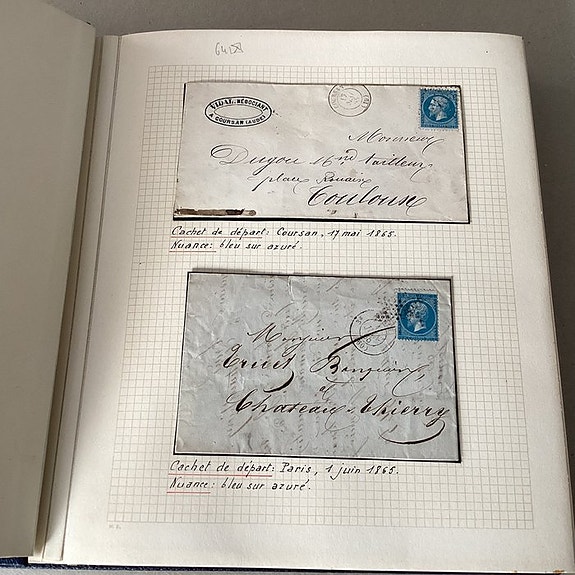 VIDAL, NÉGOCIANT
A COURSAN (AUDE)
Monsieur
Dugou Md tailleur
place Rouaix
Toulouse
Cachet de départ: Coursan, 17 mai 1865.
Nuance: bleu sur azuré.
Monsieur
Truet Banquier
et
Chateau-Thierry
Cachet de départ: Paris, 1 juin 1865.
Nuance: bleu sur azuré.